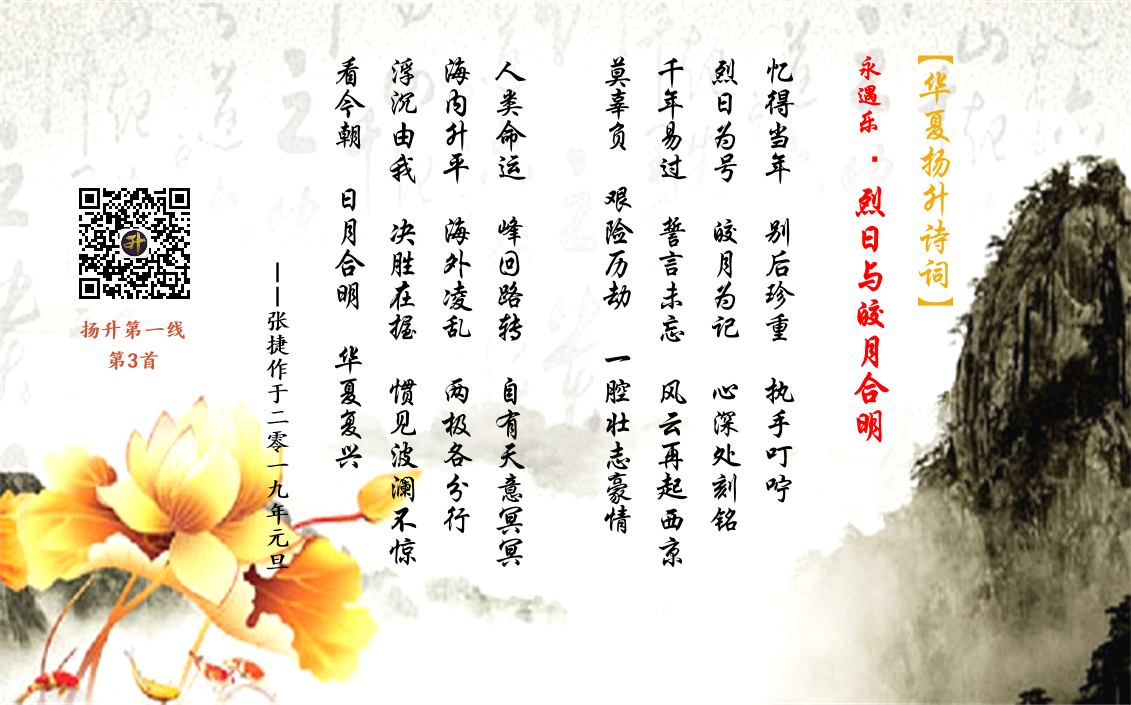 【华夏扬升诗词】
永遇乐·烈日与皎月合明
忆得当年 别后珍重 执手叮咛
烈日为号 皎月为记 心深处刻铭
千年易过 誓言未忘 风云再起西京
莫辜负 艰险历劫 一腔壮志豪情
人类命运 峰回路转 自有天意冥冥
海内升平 海外凌乱 两极各分行
浮沉由我 决胜在握 惯见波澜不惊
看今朝 日月合明 华夏复兴
——张捷作于二零一九年元旦
升
扬升第一线
第3首